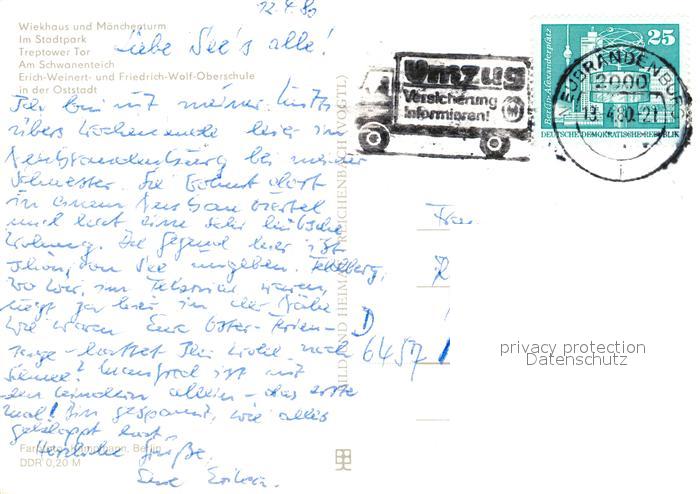 12.4.80
Wiekhaus und Mönchenturm
Im Stadtpark
Treptower Tor
Am Schwanenteich
Erich-Weinert- und Friedrich-Wolf-Oberschule
in der Oststadt
Liebe See's alle!
Ich bin mit meiner
übers Wochenende hier in
Neubrandenburg bei meiner
Schwester. Sie wohnt dort
in einem Neubauviertel
und hat eine sehr hübsche
Wohnung. Die Gegend hier ist
schön, von See umgeben. Feldberg,
wo wir im Februar waren,
liegt ja hier in der Nähe
Wie waren Eure Oster-Ferien-
tage - hattet Ihr wohl noch
ist mit
den Kindern allein - das erste
Mal! Bin gespannt, wie alles
geklappt hat.
Herzliche Grüße.
Eure
Farbfotos: Kampmann, Berlin
DDR 0,20 M
BILD UND HEIMAT REICHENBACH (VOGTL)
Umzug
Versicherung
informieren!
25
Berlin-Alexanderplatz
DEUTSCHE DEMOKRATISCHE REPUBLIK
NEUBRANDENBURG
2000
13.4.80.-21
Frau
R
D
6457
privacy protection
Datenschutz